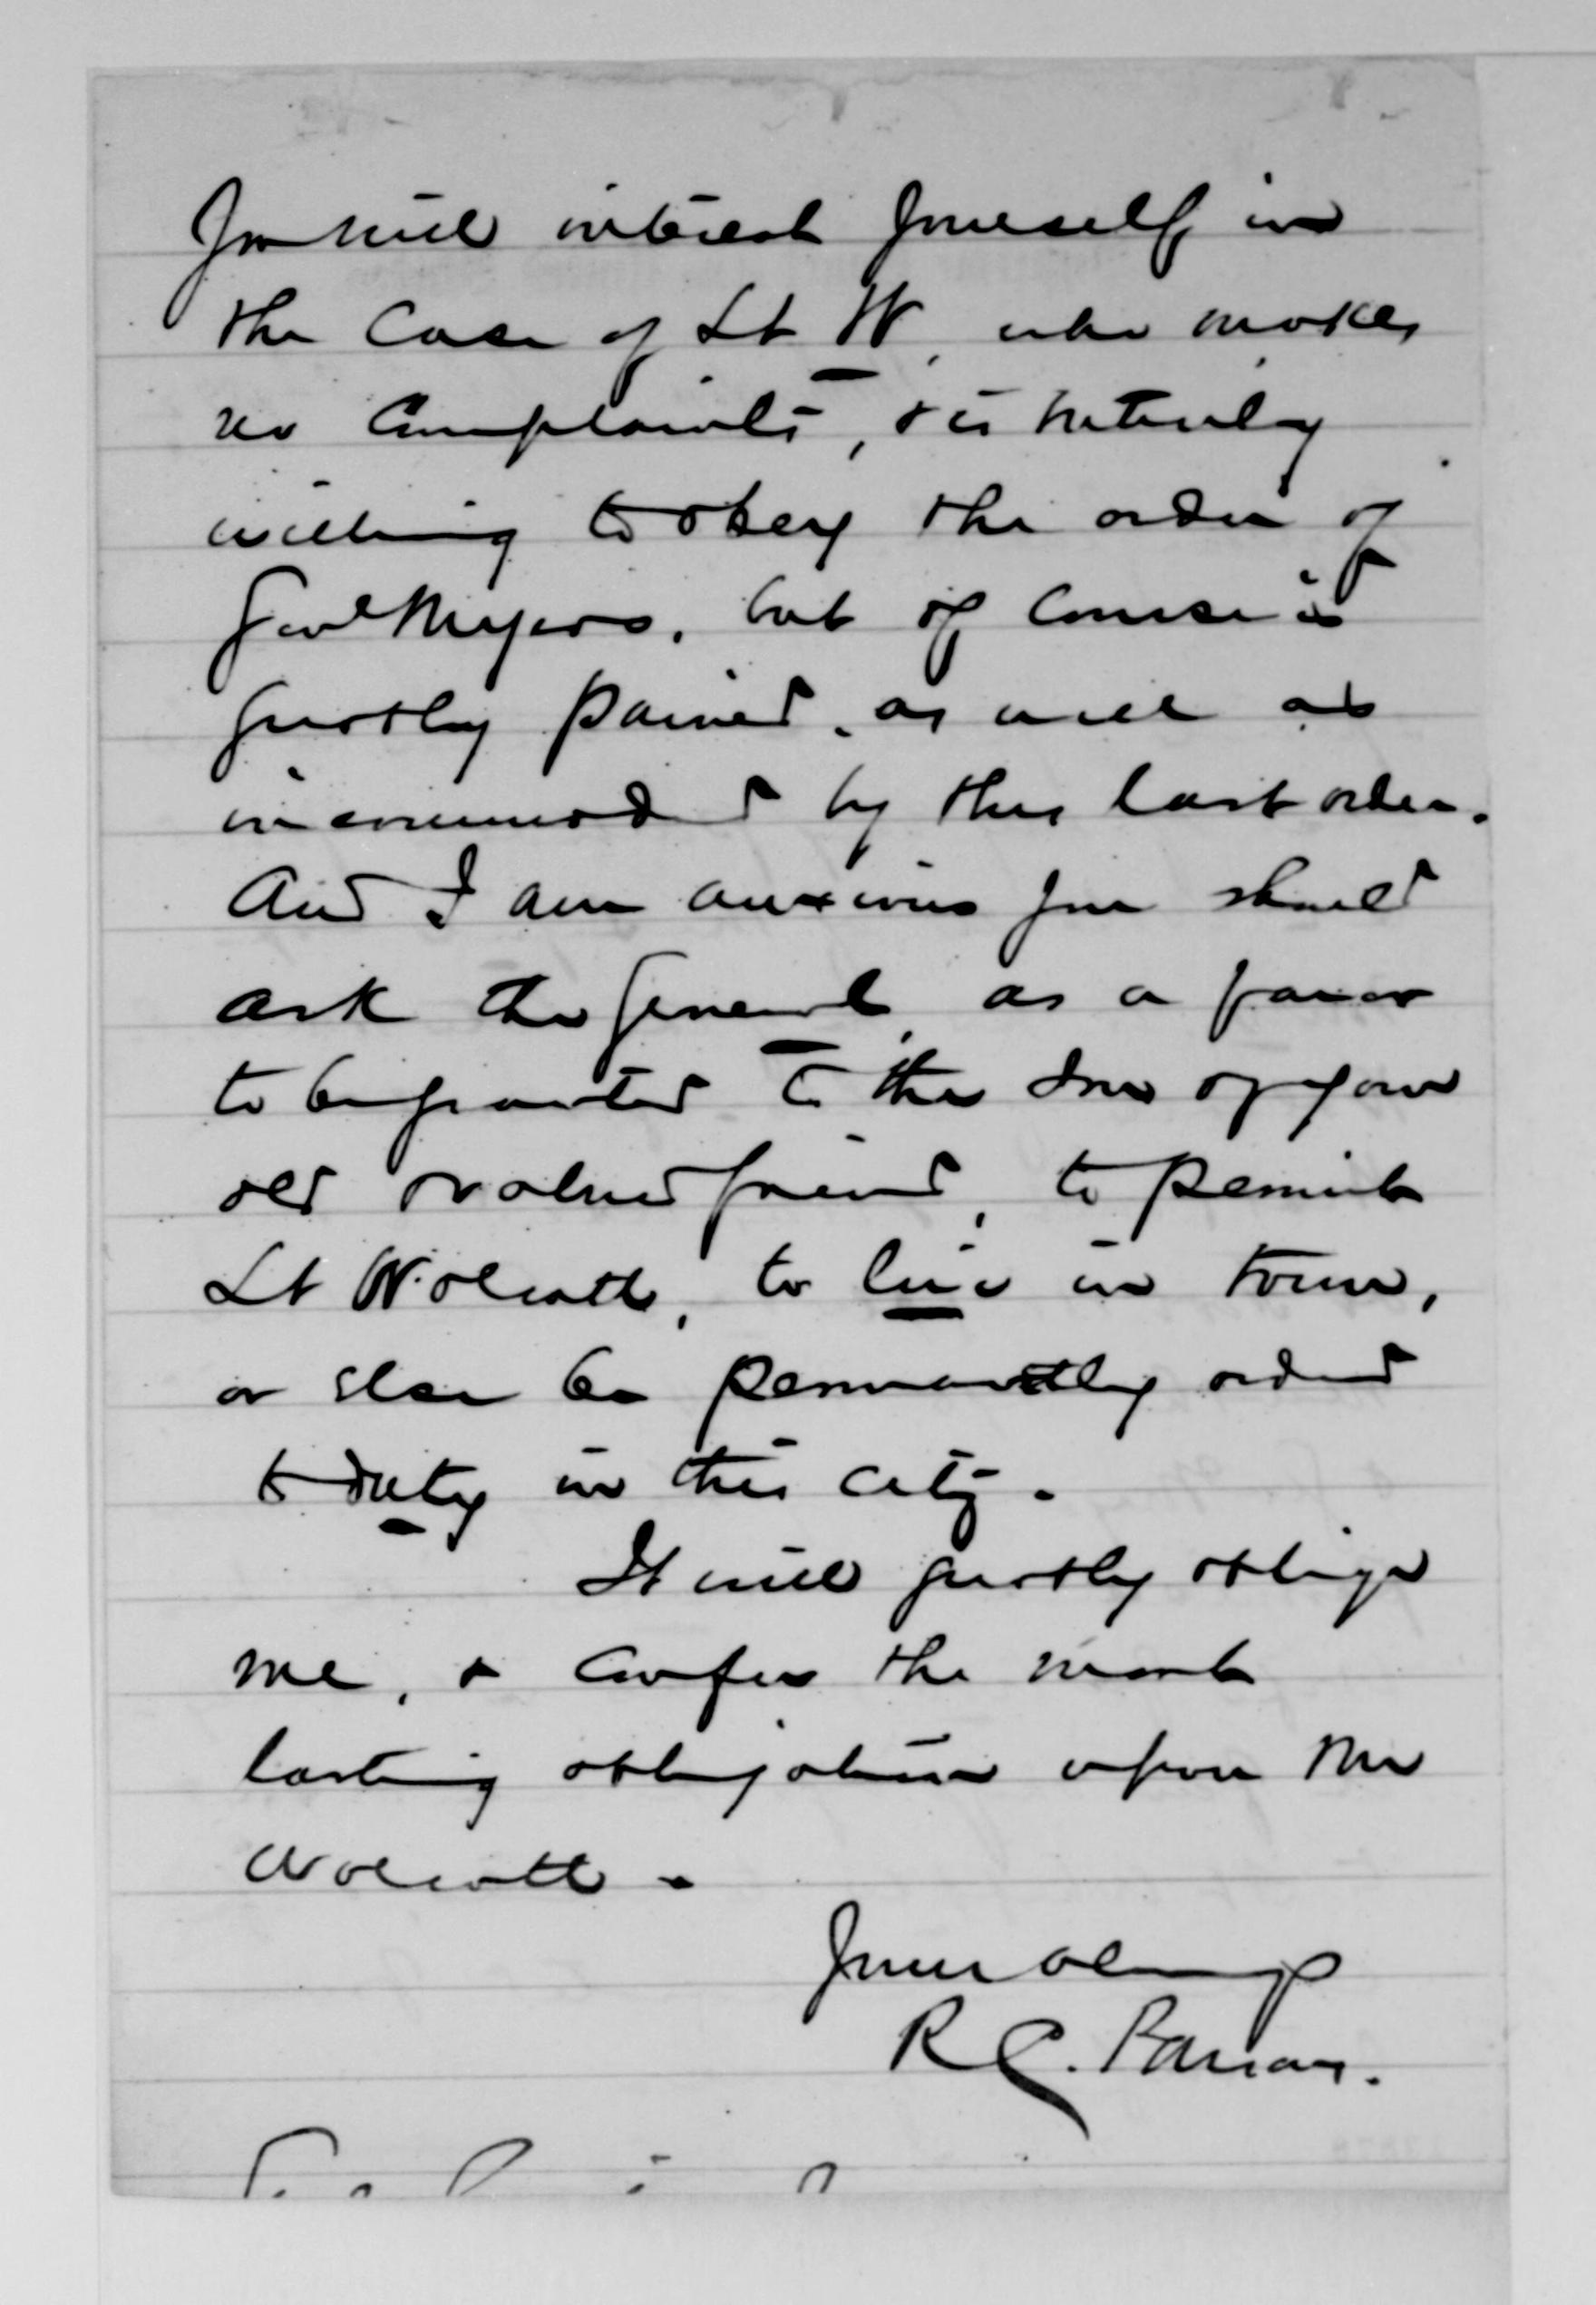 You will interest yourself in
the case of Lt W, who makes
no complaints, & is naturally
willing to obey the order of
Genl Meyers, but of course is
greatly pained, as well as
incommoded by this last order.
And I am anxious you should
ask the General, as a favor
to be granted to the son of your
old & valued friend, to permit
Lt Wolcott, to live in town,
or else be permanently ordered
to duty in this city.
It will greatly oblige
me, & confer the most
lasting obligation upon Mr
Wolcott.
Yours always
R C. Parsons.